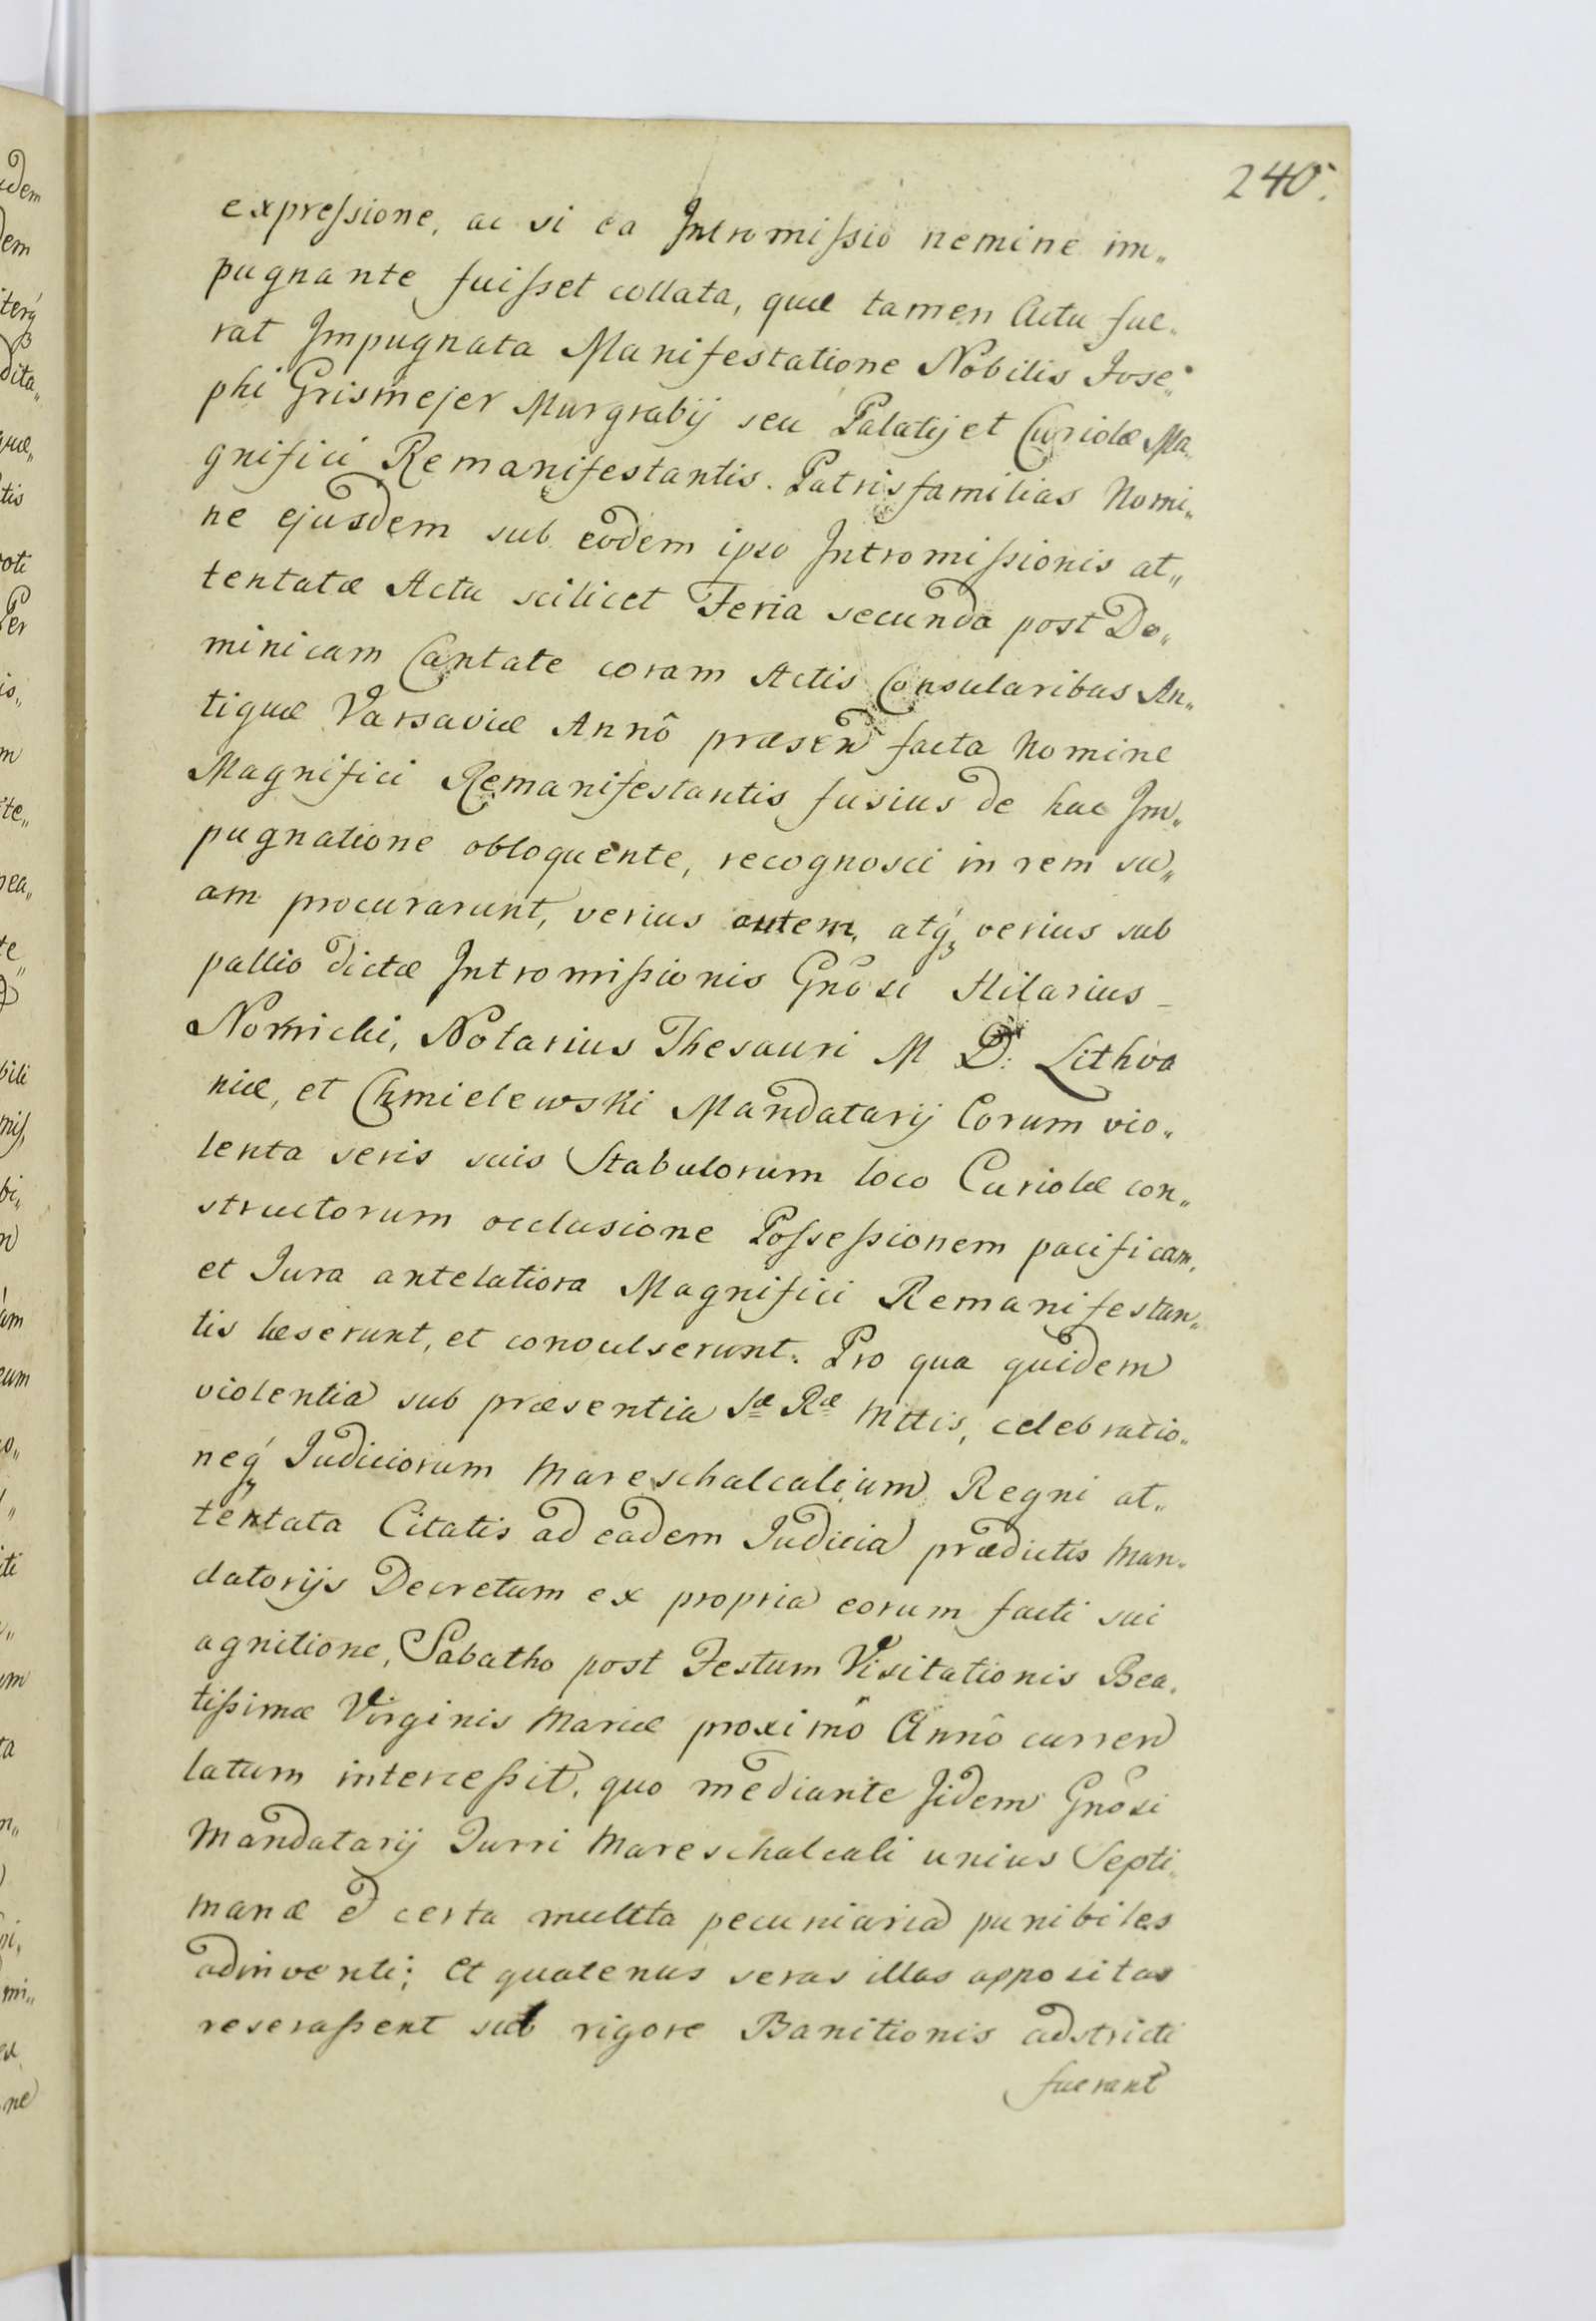 240.
expressione, ac si ea Intromissio nemine im„
pugnante fuisset collata, quæ tamen Actu fue„
rat Impugnata Manifestatione Nobilis Jose„
phi Grismejer Murgrabij seu Palatij et Curiolæ Ma„
gnifici Remanifestantis. Patrisfamilias Nomi„
ne ejusdem sub eodem ipso Intromissionis at„
tentatæ Actu scilicet Feria secunda post Do„
minicam Cantate coram Actis Consularibus An„
tiquæ Varsaviæ Annô præsen facta Nomine
Magnifici Remanifestantis fusius de hac Im„
pugnatione obloquente, recognosci in rem su„
am procurarunt, verius autem, atq́ verius sub
pallio dictæ Intromissionis Gnosi Hilarius
Nornicki, Notarius Thesauri M D: Lithva
niæ, et Chmielewski Mandatarij Eorum vio„
lenta seris suis Stabulorum loco Curiolæ con„
structorum occlusione Possessionem pacificam,
et Jura antelatiora Magnifici Remanifestan„
tis læserunt, et convulserunt. Pro qua quidem
violentia sub præsentia Sæ Ræ Mttis, celebratio„
neq́ Judiciorum Mareschalcalium Regni at„
tentata Citatis ad eadem Judicia prædictis Man„
datorijs Decretum ex propria eorum facti sui
agnitione, Sabatho post Festum Visitationis Bea„
tissimæ Virginis Mariæ proximô Annô curren
latum intercessit, quo mediante Jidem Gnosi
Mandatarij Turri Mareschalcali unius Septi„
manæ & certa muleta pecuniaria punibiles
adinventi; et quatenus seras illas appositas
reserassent sub rigore Banitionis adstricti
fuerant